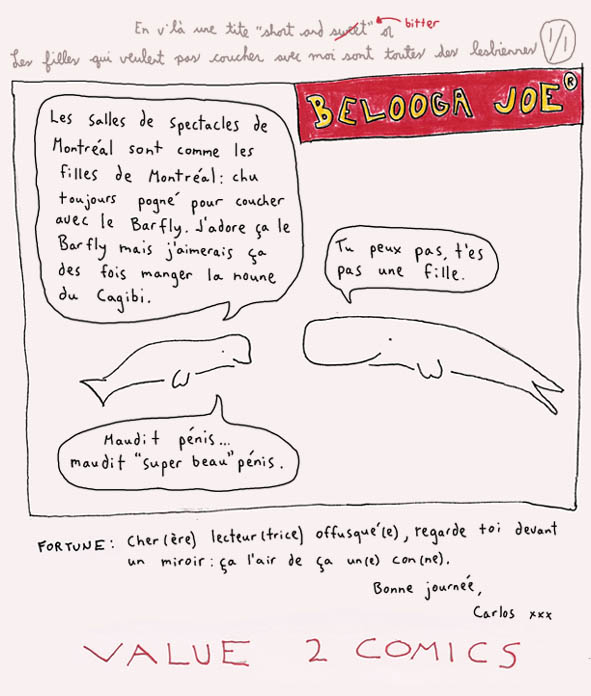 En v'là une tite "short and sweet" sol
bitter
Les filles qui veulent pas coucher avec moi sont toutes des lesbiennes
1/1
BELOOGA JOE®
Les salles de spectacles de
Montréal sont comme les
filles de Montréal: chu
toujours pogné pour coucher
avec le Barfly. J'adore ça le
Barfly mais j'aimerais ça
des fois manger la noune
du Cagibi.
Tu peux pas, t'es
pas une fille.
Maudit pénis...
maudit "super beau" pénis.
FORTUNE: Cher(ère) lecteur(trice) offusqué(e), regarde toi devant
un miroir: ça l'air de ça un(e) con(ne).
Bonne journée,
Carlos xxx
VALUE 2 COMICS